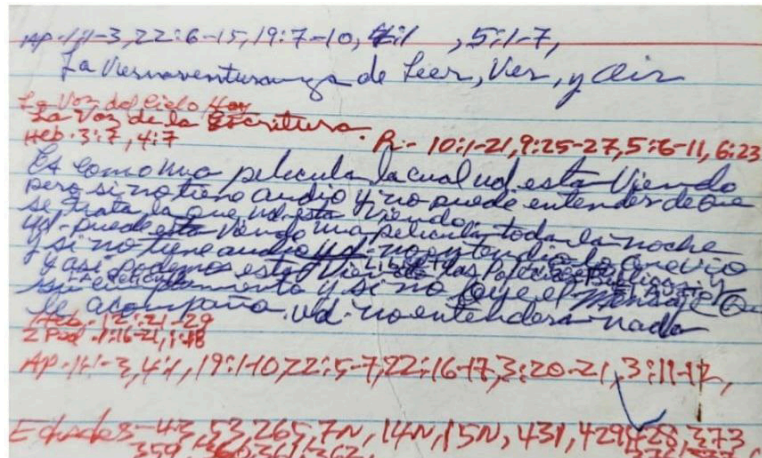 Ap. 1:1-3, 22:6-15, 19:7-10, 4:1 , 5:1-7,
La Vienaventuranza de Leer, Ver, y Oir
La Voz del Cielo Hoy
La Voz de la Escritura.
Heb. 3:7, 4:7
R:- 10:1-21, 9:25-27, 5:6-11, 6:23
Es como una pelicula la cual ud. esta Viendo
pero si no tiene audio y no puede entender de que
se trata la que ud esta Viendo.
ud. puede esta Viendo una pelicula toda la noche
y si no tiene audio ud. no entendio lo que vio
y asi podemos estar Viendo las
y si no oye el Mensaje Que
le acompaña. ud. no entendera nada
Heb. 12:21-29
2 Ped. 1:16-21, 1:18
Ap. 1:1-3, 4:1, 19:1-10, 22:5-7, 22:16-17, 3:20-21, 3:11-12,
Edades - 43, 53, 265, 7N, 14N, 15N, 431, 429, 428, 373
359, 360, 361, 362,